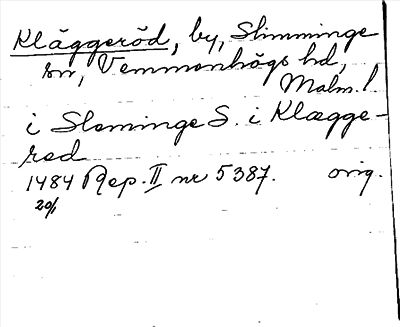 Kläggeröd, by, Slimminge
sn, Vemmenhögs hd,
Malm. l
i Sleminge S. i Klægge-
rød
1484 Rep. II nr 5387. orig.
20/1